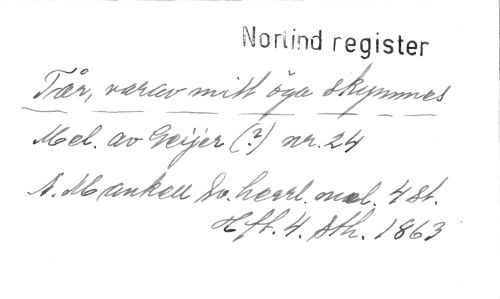 Norlind register
Tår, varav mitt öga skymmes
Mel. av Geijer (?) nr. 24
A. Mankell Sv. herrl. mel. 4 st.
Hft. 4. Sth. 1863